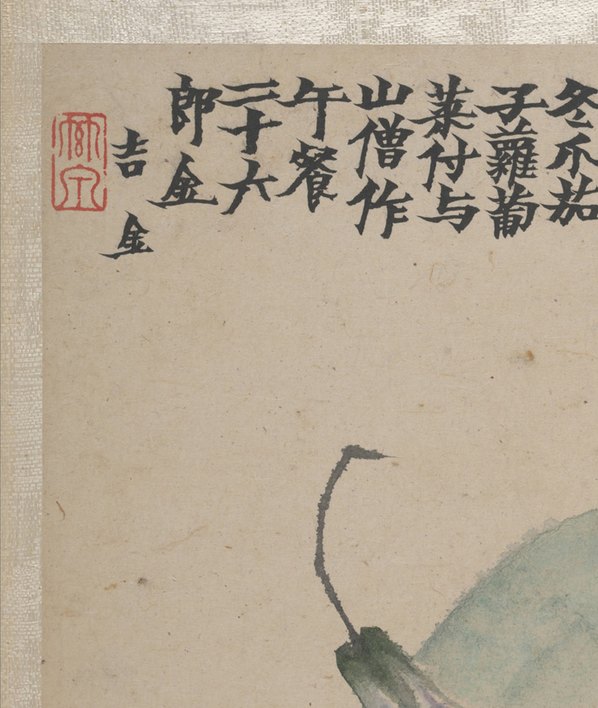 冬瓜茄
子蘿蔔
菜付与
山僧作
午餐
三十六
郎金
吉金